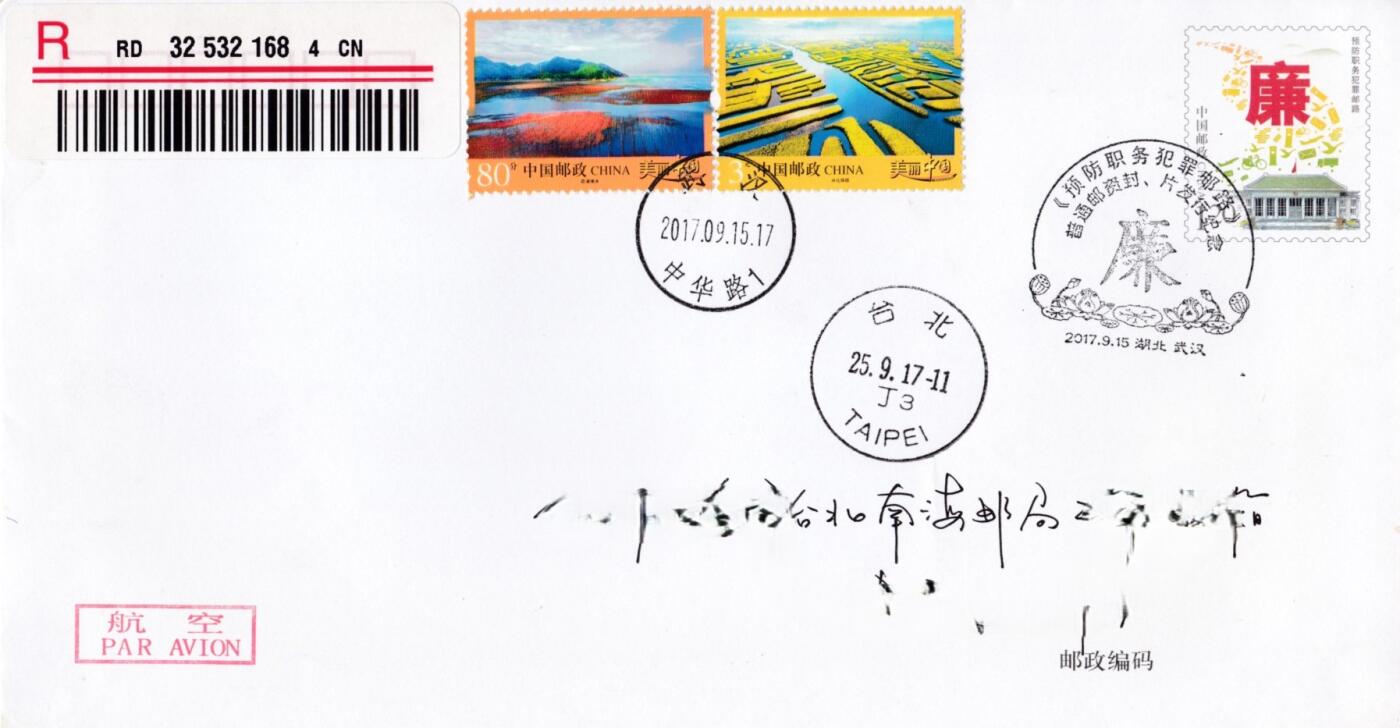 R RD 32 532 168 4 CN
80分 中国邮政 CHINA 美丽中国
3 中国邮政 CHINA 美丽中国
预防职务犯罪邮路
中国邮政
廉
《预防职务犯罪邮路》
普通邮资封、片发行纪念
廉
2017.9.15 湖北 武汉
武汉
2017.09.15.17
中华路1
台北
25.9.17-11
J3
TAIPEI
台北南海邮局
箱
航空
PAR AVION
邮政编码